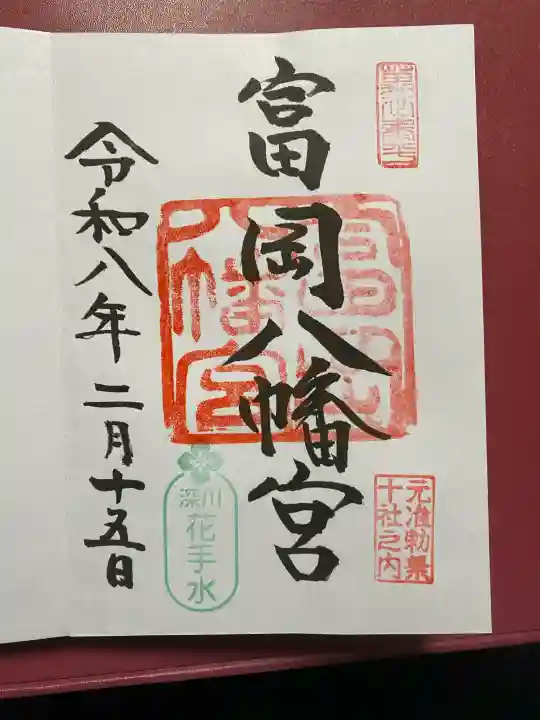 富岡八幡宮
富岡
八幡宮
元准勅祭
十社之内
深川
花手水
令和八年二月十五日